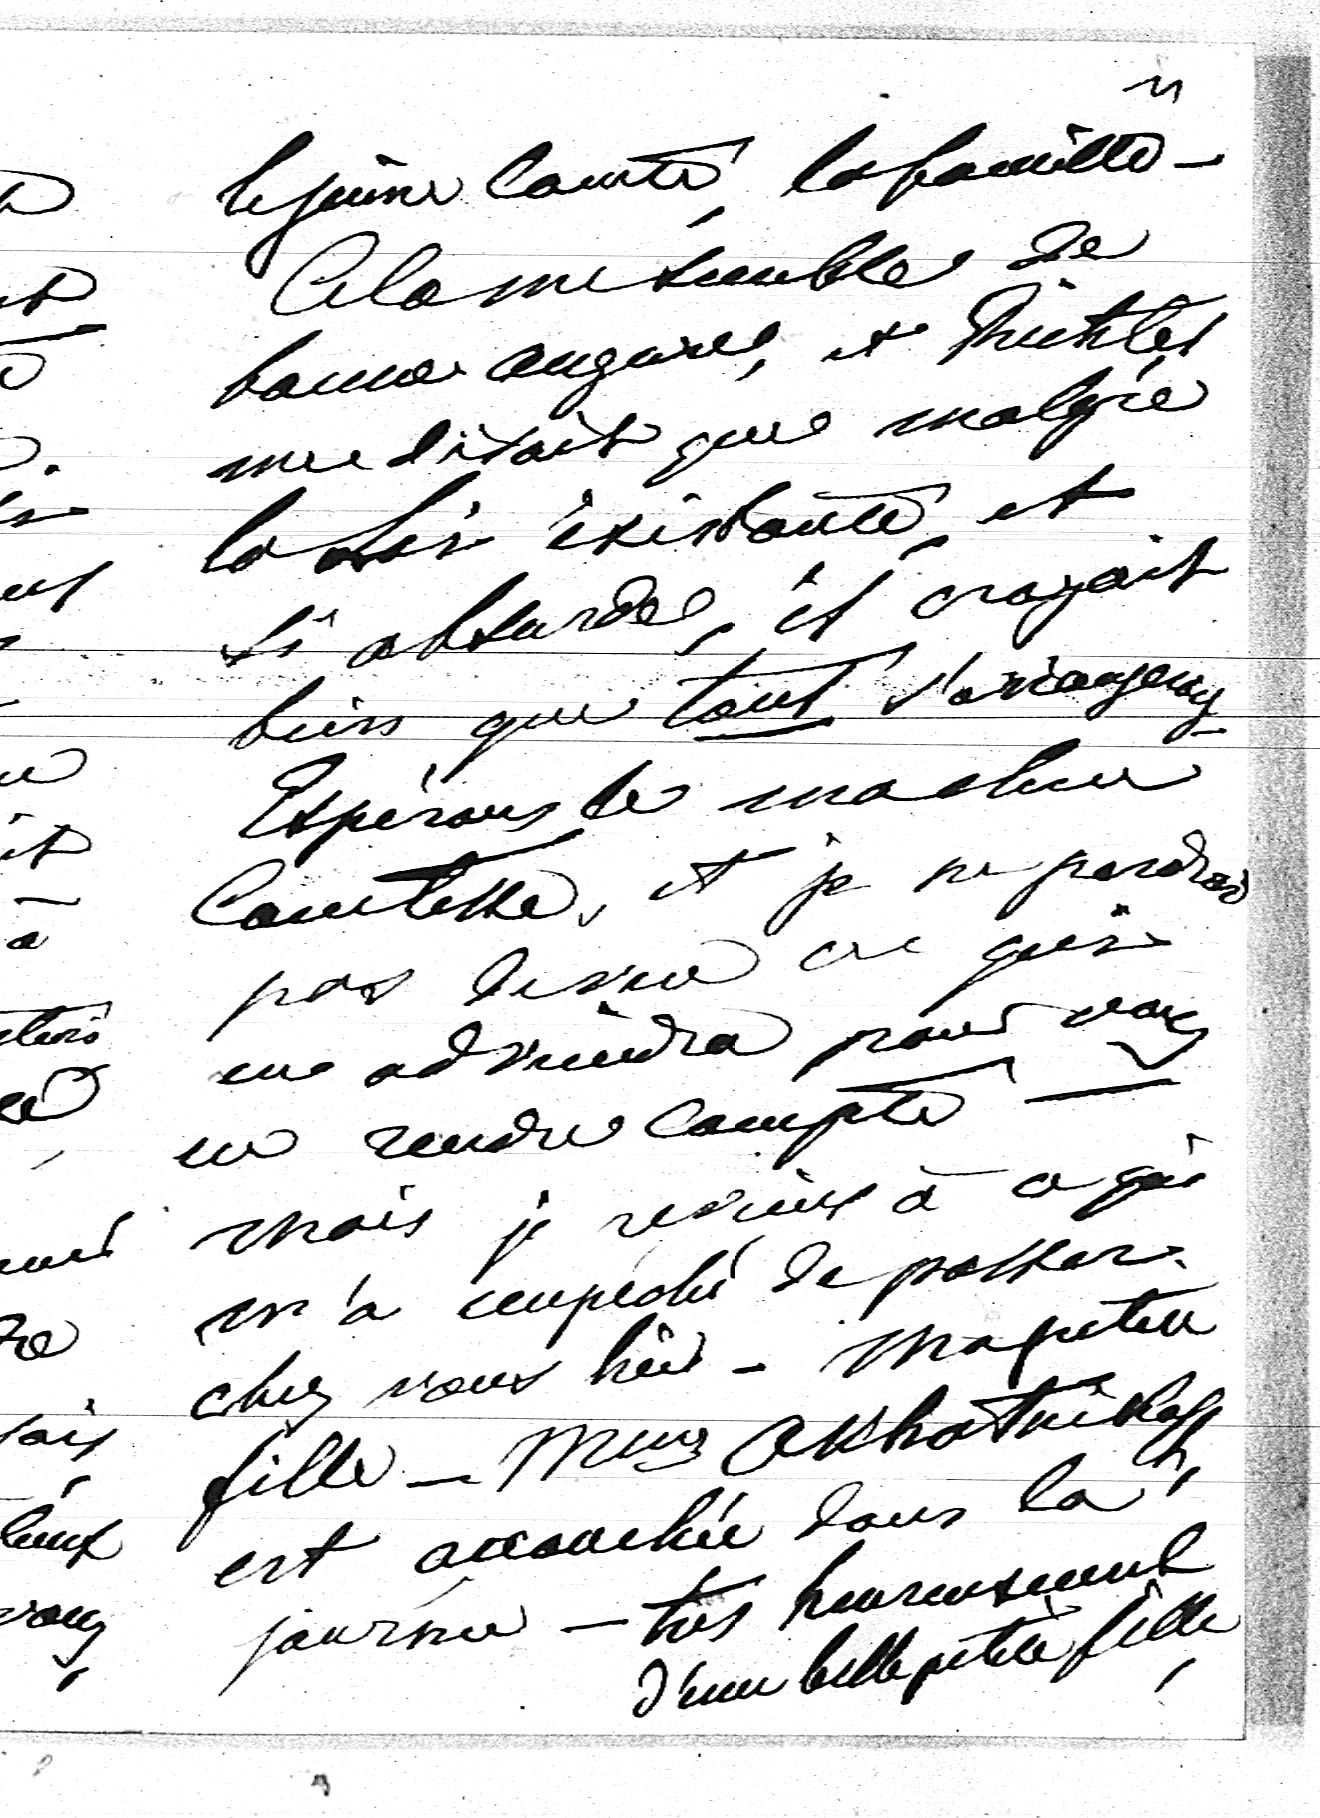 le jeune Comte, la famille –
Cela me semble de
bonne augure, et
me disait que malgré
la loi existante, et
si absurde, il croyait
bien que tout s'arrangera –
Espérons le ma chère
Comtesse, et je ne perdrai
pas de vue ce qui
en adviendra pour vous
en rendre compte —
Mais je reviens à ce qui
m'a empêché de passer
chez vous hier – Ma petite
fille – Mme Okhotnikoff,
est accouchée dans la
journée – très heureusement
d'une belle petite fille,